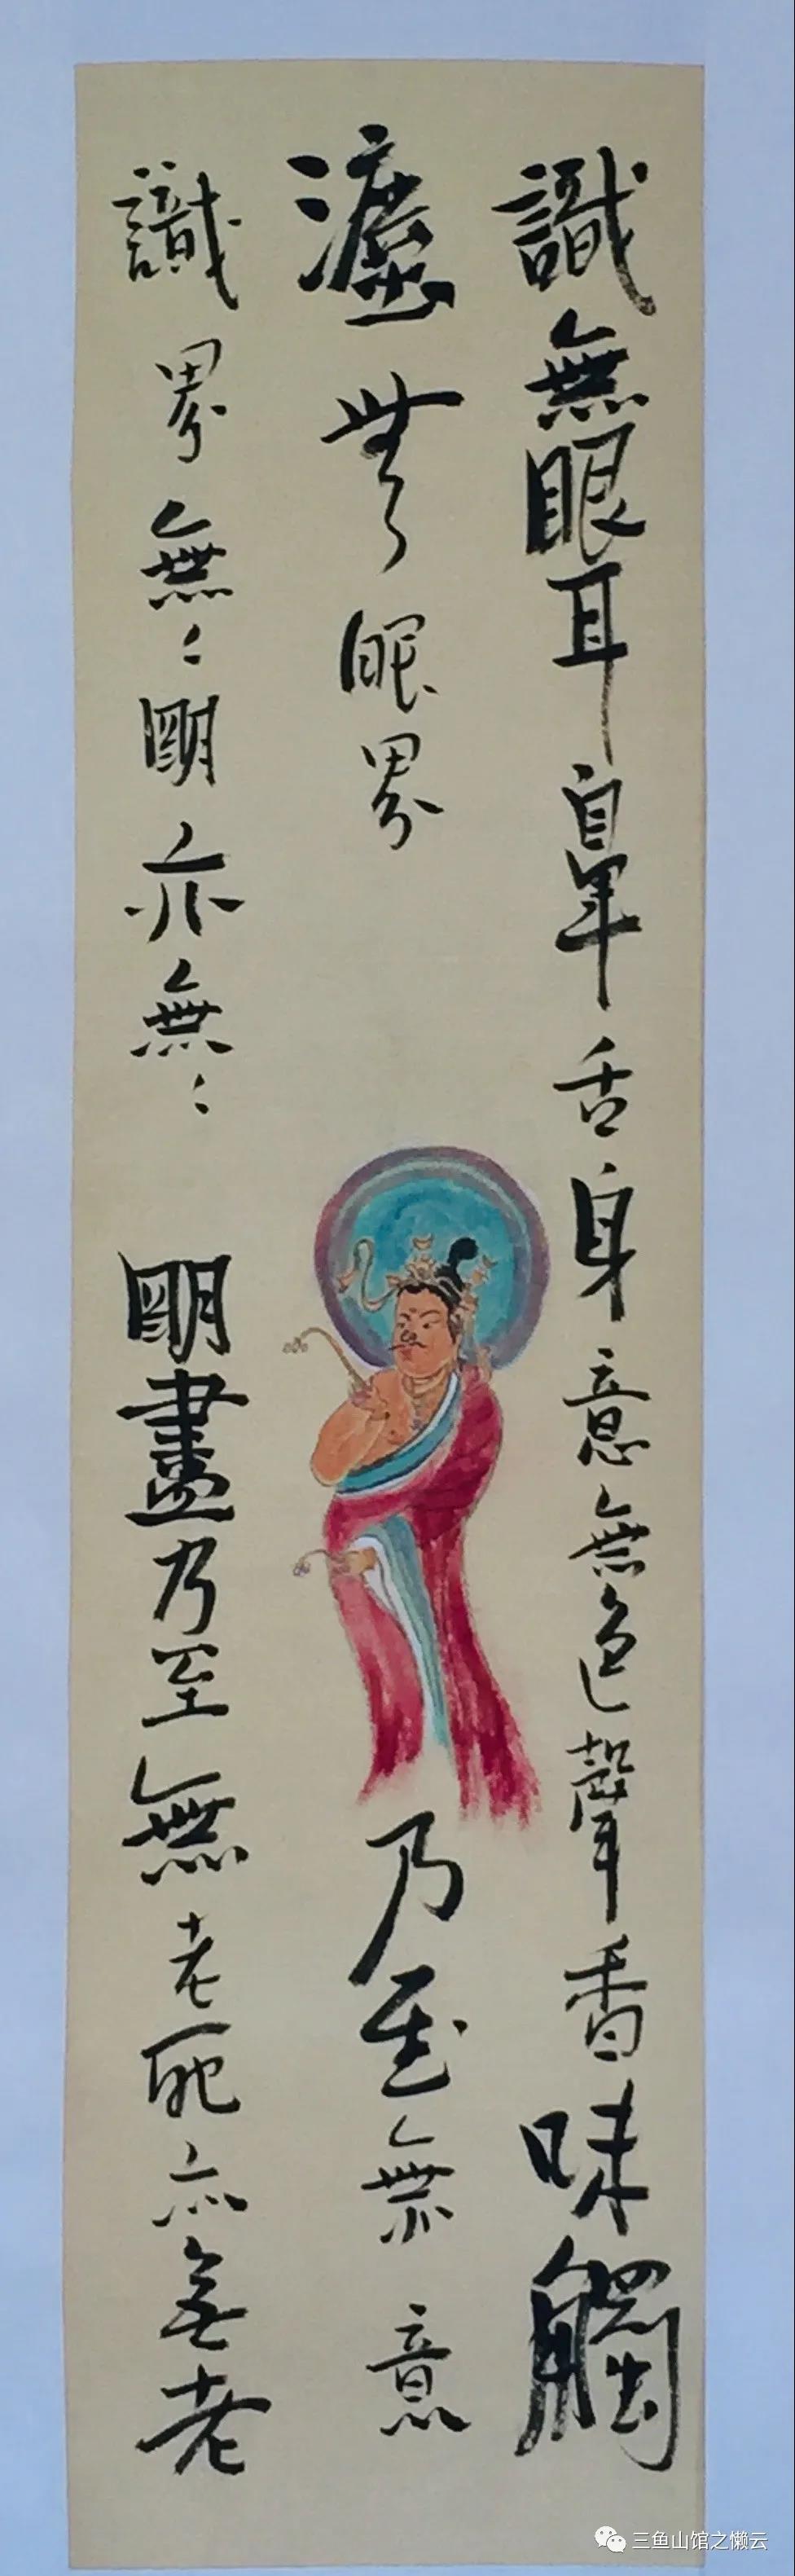 識無眼耳鼻舌身意無色聲香味觸
灋無眼界乃至無意
識界無〻明亦無〻明盡乃至無老死亦無老
三鱼山馆之懒云